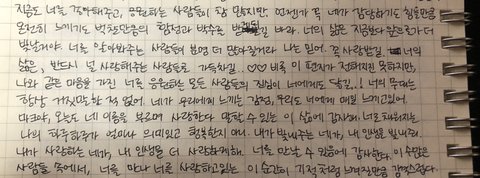 지금도 너를 좋아해주고, 응원하는 사람들이 참 많지만, 언젠가 꼭 네가 감당하기 힘들만큼
온전히 느끼기도 벅찰만큼의 함성과 박수로 바라. 너의 삶은 지금보다 앞으로가 더
빛날거야. 너를 알아봐주는 사람들이 분명 더 많아질거라 나는 믿어. 꼭 사랑받길 너의
삶은, 반드시 널 사랑해주는 사람들로 가득하길. ♡♡ 비록 이 편지가 전해지진 못하지만,
나와 같은 마음을 가진 너를 응원하는 모든 사람들의 진심이 너에게도 닿길..! 너의 무대는
항상 거짓말한 적 없어. 네가 우리에게 느끼는 감정, 우리도 너에게 매일 느끼고있어.
마크야, 오늘도 네 이름을 부르며 사랑한다 말할 수 있는 이 삶에 감사해. 너로 채워지는
나의 하루하루가 얼마나 의미있고 행복한지 매시. 내가 빛내주는 네가, 내 인생을 빛내줘.
내가 사랑하는 네가, 내 인생을 더 사랑하게해. 너를 만날 수 있음에 감사한다. 이 수많은
사람들 속에서, 너를 만나 너를 사랑하고있는 이 순간이 기적처럼 느껴지만큼 감격스럽다.